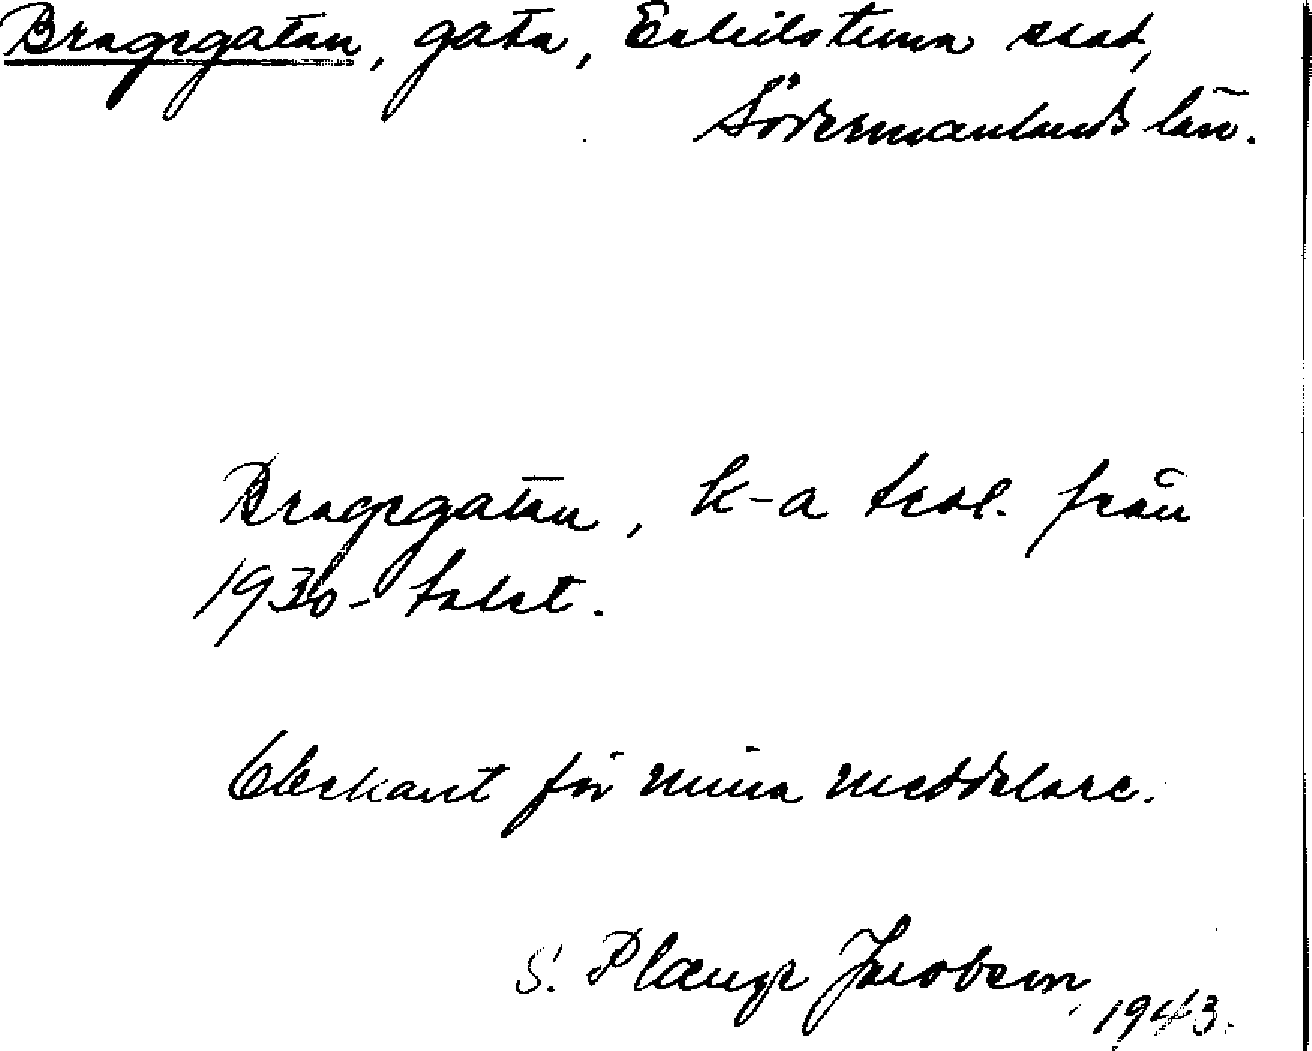 Bragegatan, gata, Eskilstuna stad,
Södermanlands län.
Bragegatan, k-a trol. från
1930-talet.
Obekant för mina meddelare.
S. Plænge Jacobson, 1943.